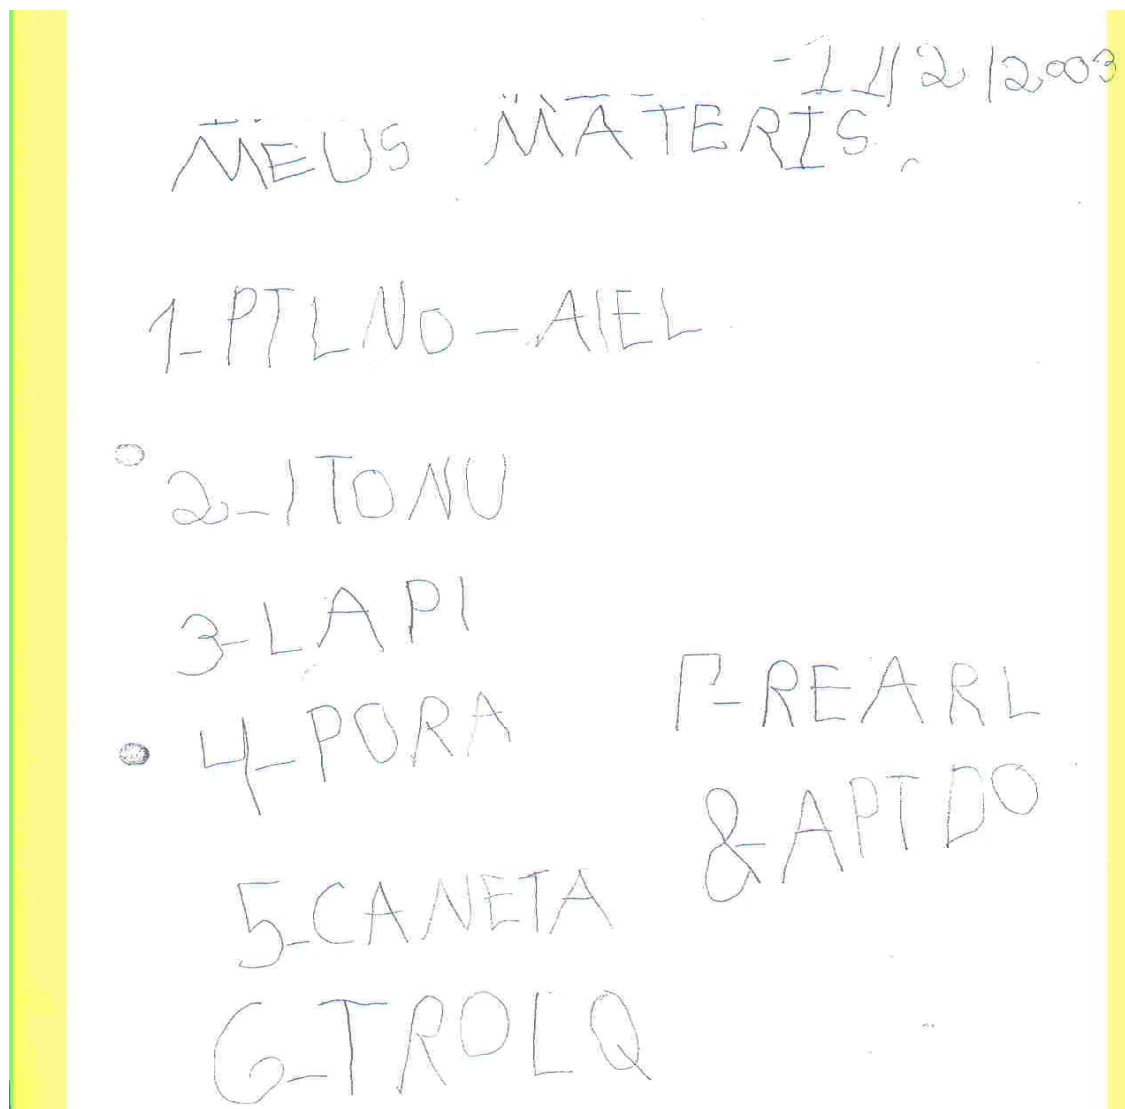 11/2/2003
MEUS MATERIS
1-PTLNO-AIEL
2-ITONU
3-LAPI
4-PORA
5-CANETA
6-TROLQ
7-REARL
8-APTDO